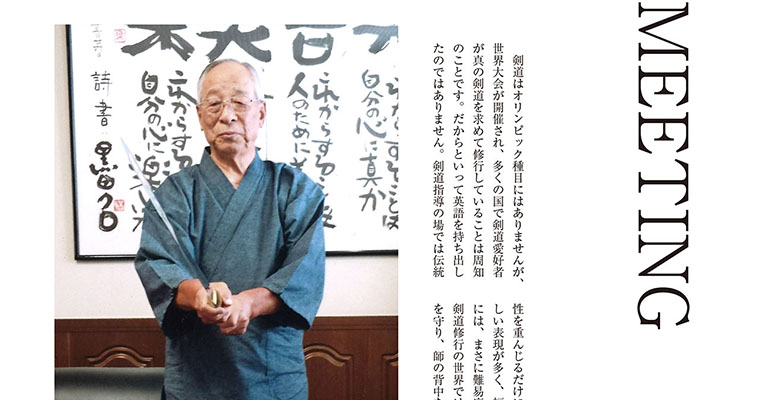 MEETING
剣道はオリンピック種目にはありませんが、
世界大会が開催され、多くの国で剣道愛好者
が真の剣道を求めて修行していることは周知
のことです。だからといって英語を持ち出し
たのではありません。剣道指導の場では伝統
性を重んじるだけ
しい表現が多く、
には、まさに難易
剣道修行の世界では
を守り、師の背中
これからすることは
自分の心に真か
これからする
人のために
これからすること
自分の心に
詩書 黒田クロ